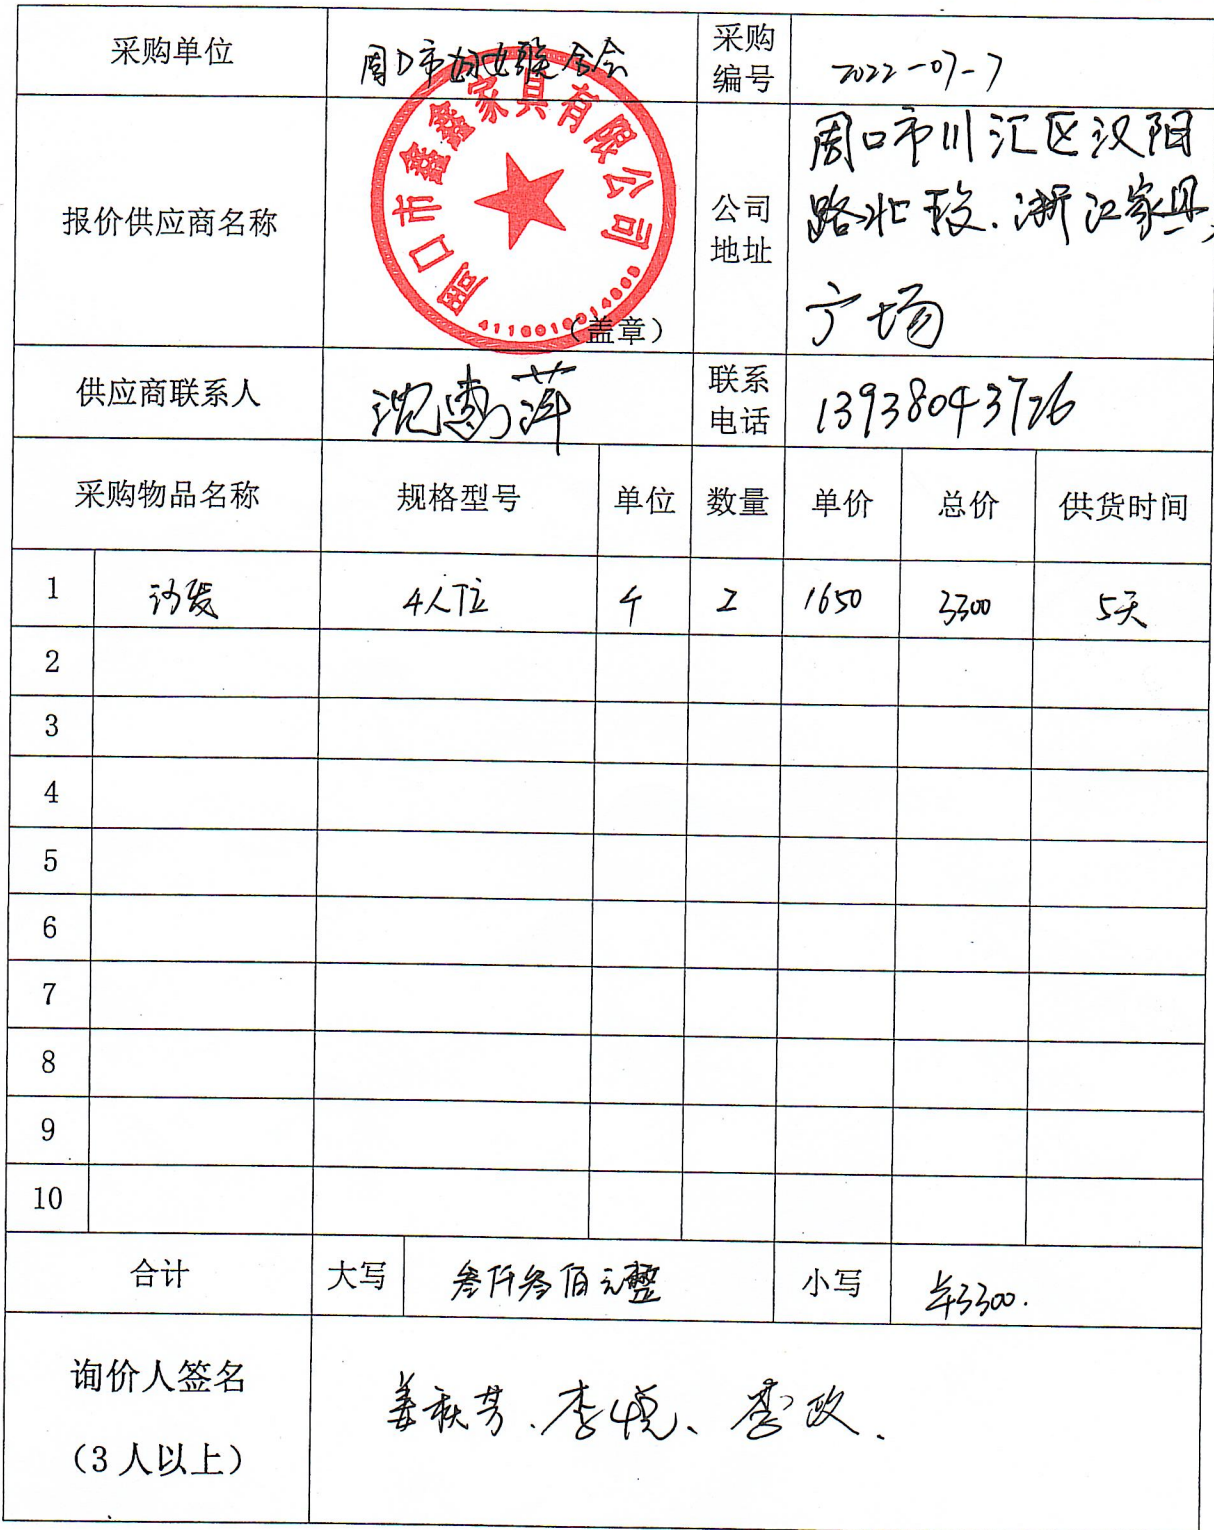 采购单位 周口市妇女联合会 采购编号 2022-07-7
报价供应商名称 周口市鑫鑫家具有限公司 (盖章) 公司地址 周口市川汇区汉阳
路北段.浙江家具
广场
供应商联系人 沈惠萍 联系电话 13938043726
采购物品名称 规格型号 单位 数量 单价 总价 供货时间
1 沙发 4人位 个 2 1650 3300 5天
2
3
4
5
6
7
8
9
10
合计 大写 叁仟叁佰元整 小写 ¥3300.
询价人签名 姜秋芳、李悦、李政.
(3人以上)